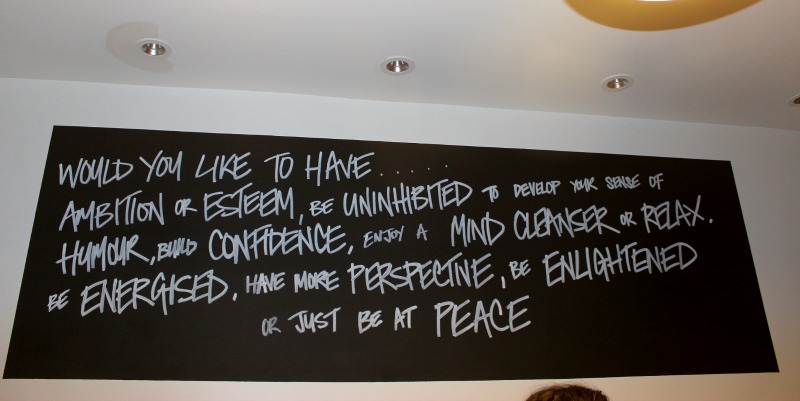 WOULD YOU LIKE TO HAVE......
AMBITION OR ESTEEM, BE UNINHIBITED TO DEVELOP YOUR SENSE OF
HUMOUR, BUILD CONFIDENCE, ENJOY A MIND CLEANSER OR RELAX.
BE ENERGISED. HAVE MORE PERSPECTIVE, BE ENLIGHTENED
OR JUST BE AT PEACE